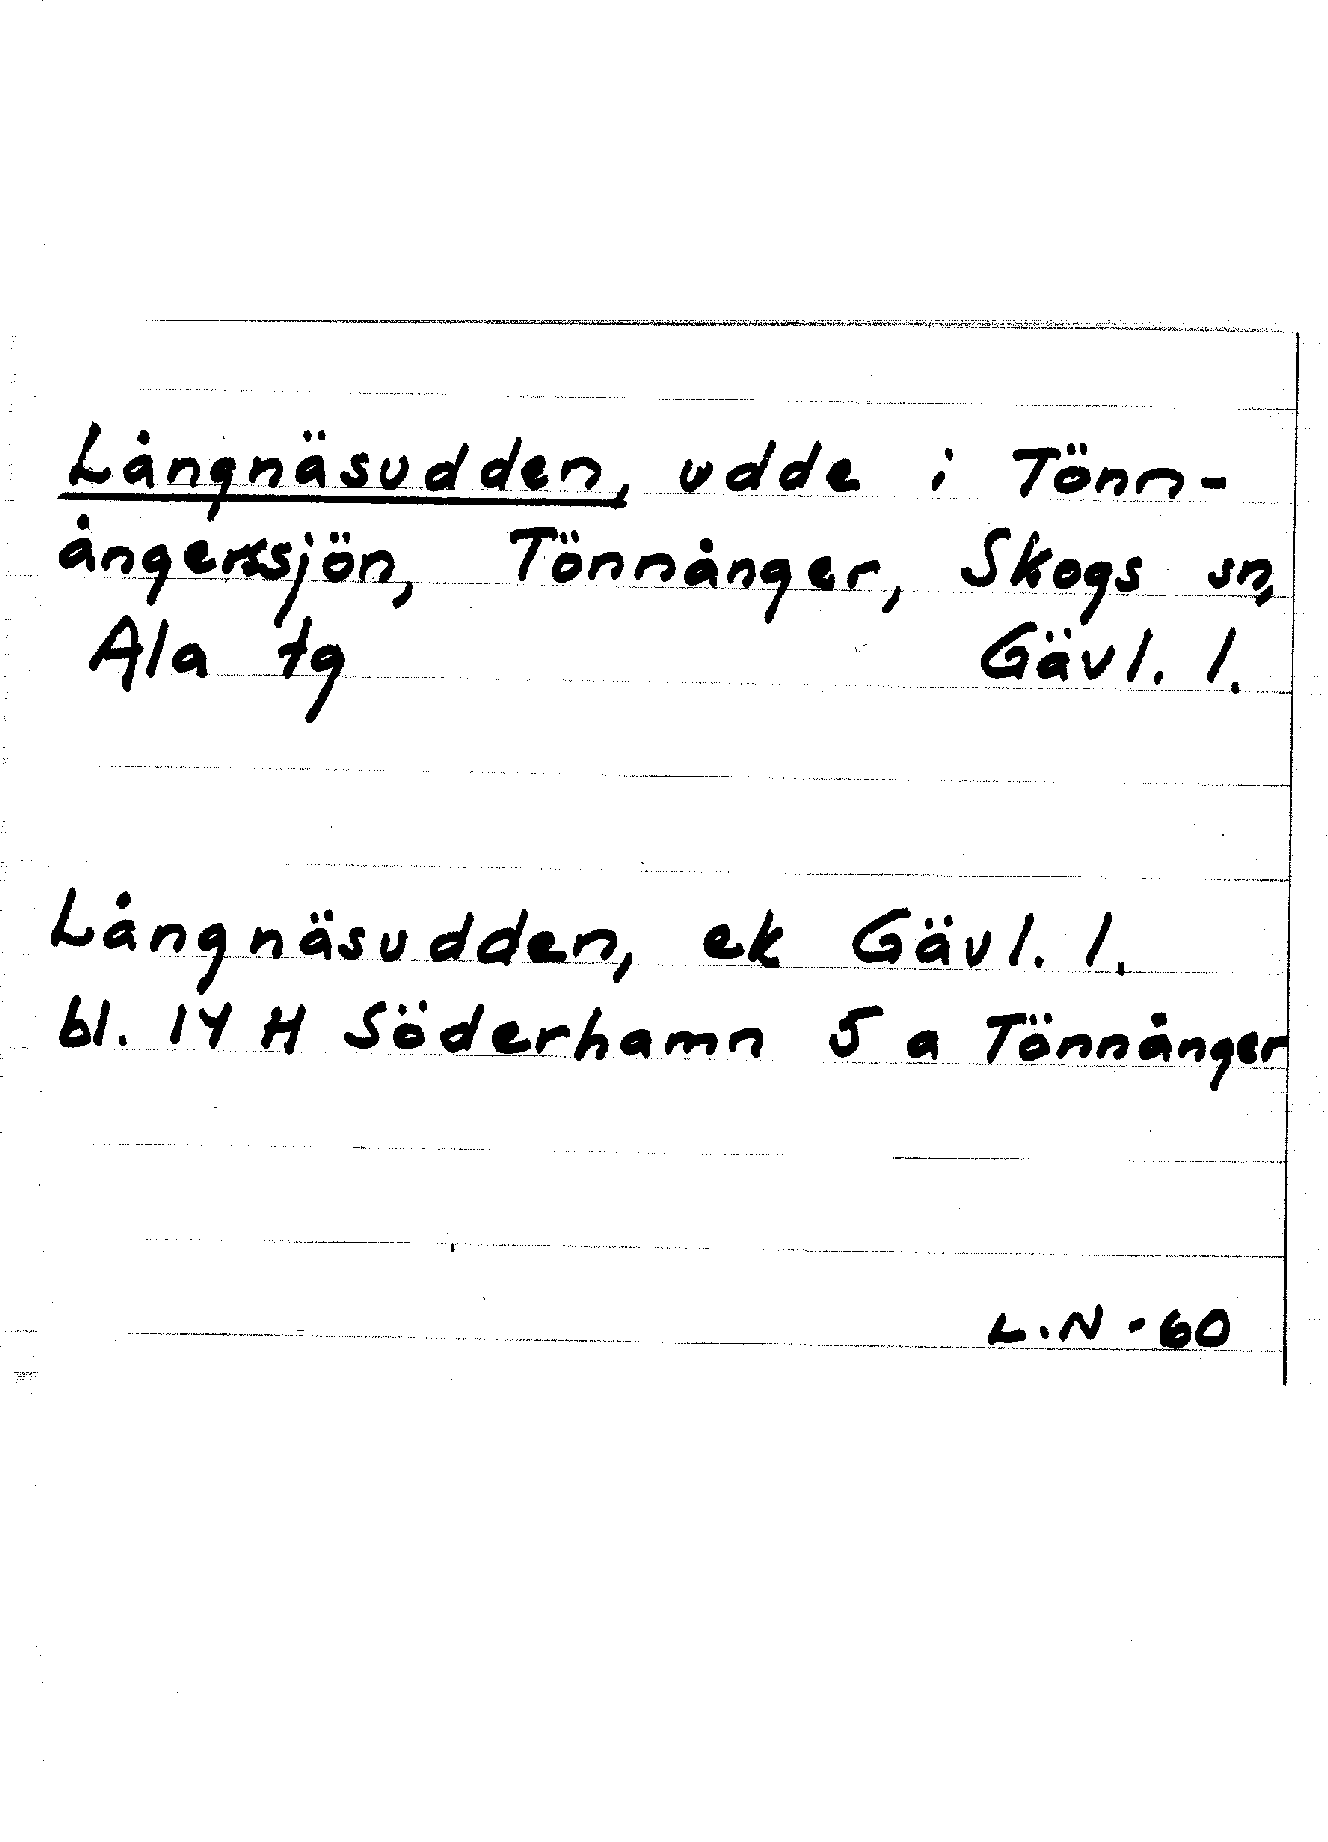 Långnäsudden, udde i Tönn-
ångerssjön, Tönnånger, Skogs sn,
Ala tg Gävl. l.
Långnäsudden, ek Gävl. l.
bl. 14 H Söderhamn 5 a Tönnånger
L.N - 60